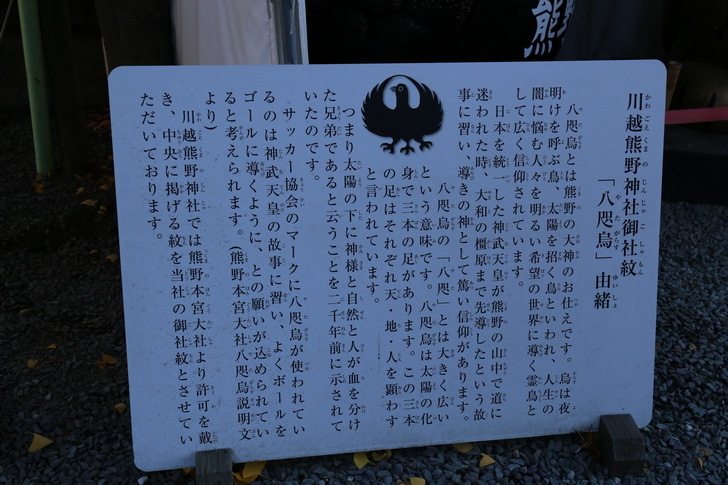 熊野
川越熊野神社御社紋
「八咫烏」由緒
八咫烏とは熊野の大神のお仕えです。烏は夜
明けを呼ぶ鳥、太陽を招く鳥といわれ、人生の
闇に悩む人々を明るい希望の世界に導く霊鳥と
して広く信仰されています。
日本を統一した神武天皇が熊野の山中で道に
迷われた時、大和の橿原まで先導したという故
事に習い、導きの神として篤い信仰があります。
八咫烏の「八咫」とは大きく広い
という意味です。八咫烏は太陽の化
身で三本の足があります。この三本
の足はそれぞれ天・地・人を顕わす
と言われています。
つまり太陽の下に神様と自然と人が血を分け
た兄弟であると云うことを二千年前に示されて
いたのです。
サッカー協会のマークに八咫烏が使われてい
るのは神武天皇の故事に習い、よくボールを
ゴールに導くように、との願いが込められてい
ると考えられます。(熊野本宮大社八咫烏説明文
より)
川越熊野神社では熊野本宮大社より許可を戴
き、中央に掲げる紋を当社の御社紋とさせてい
ただいております。